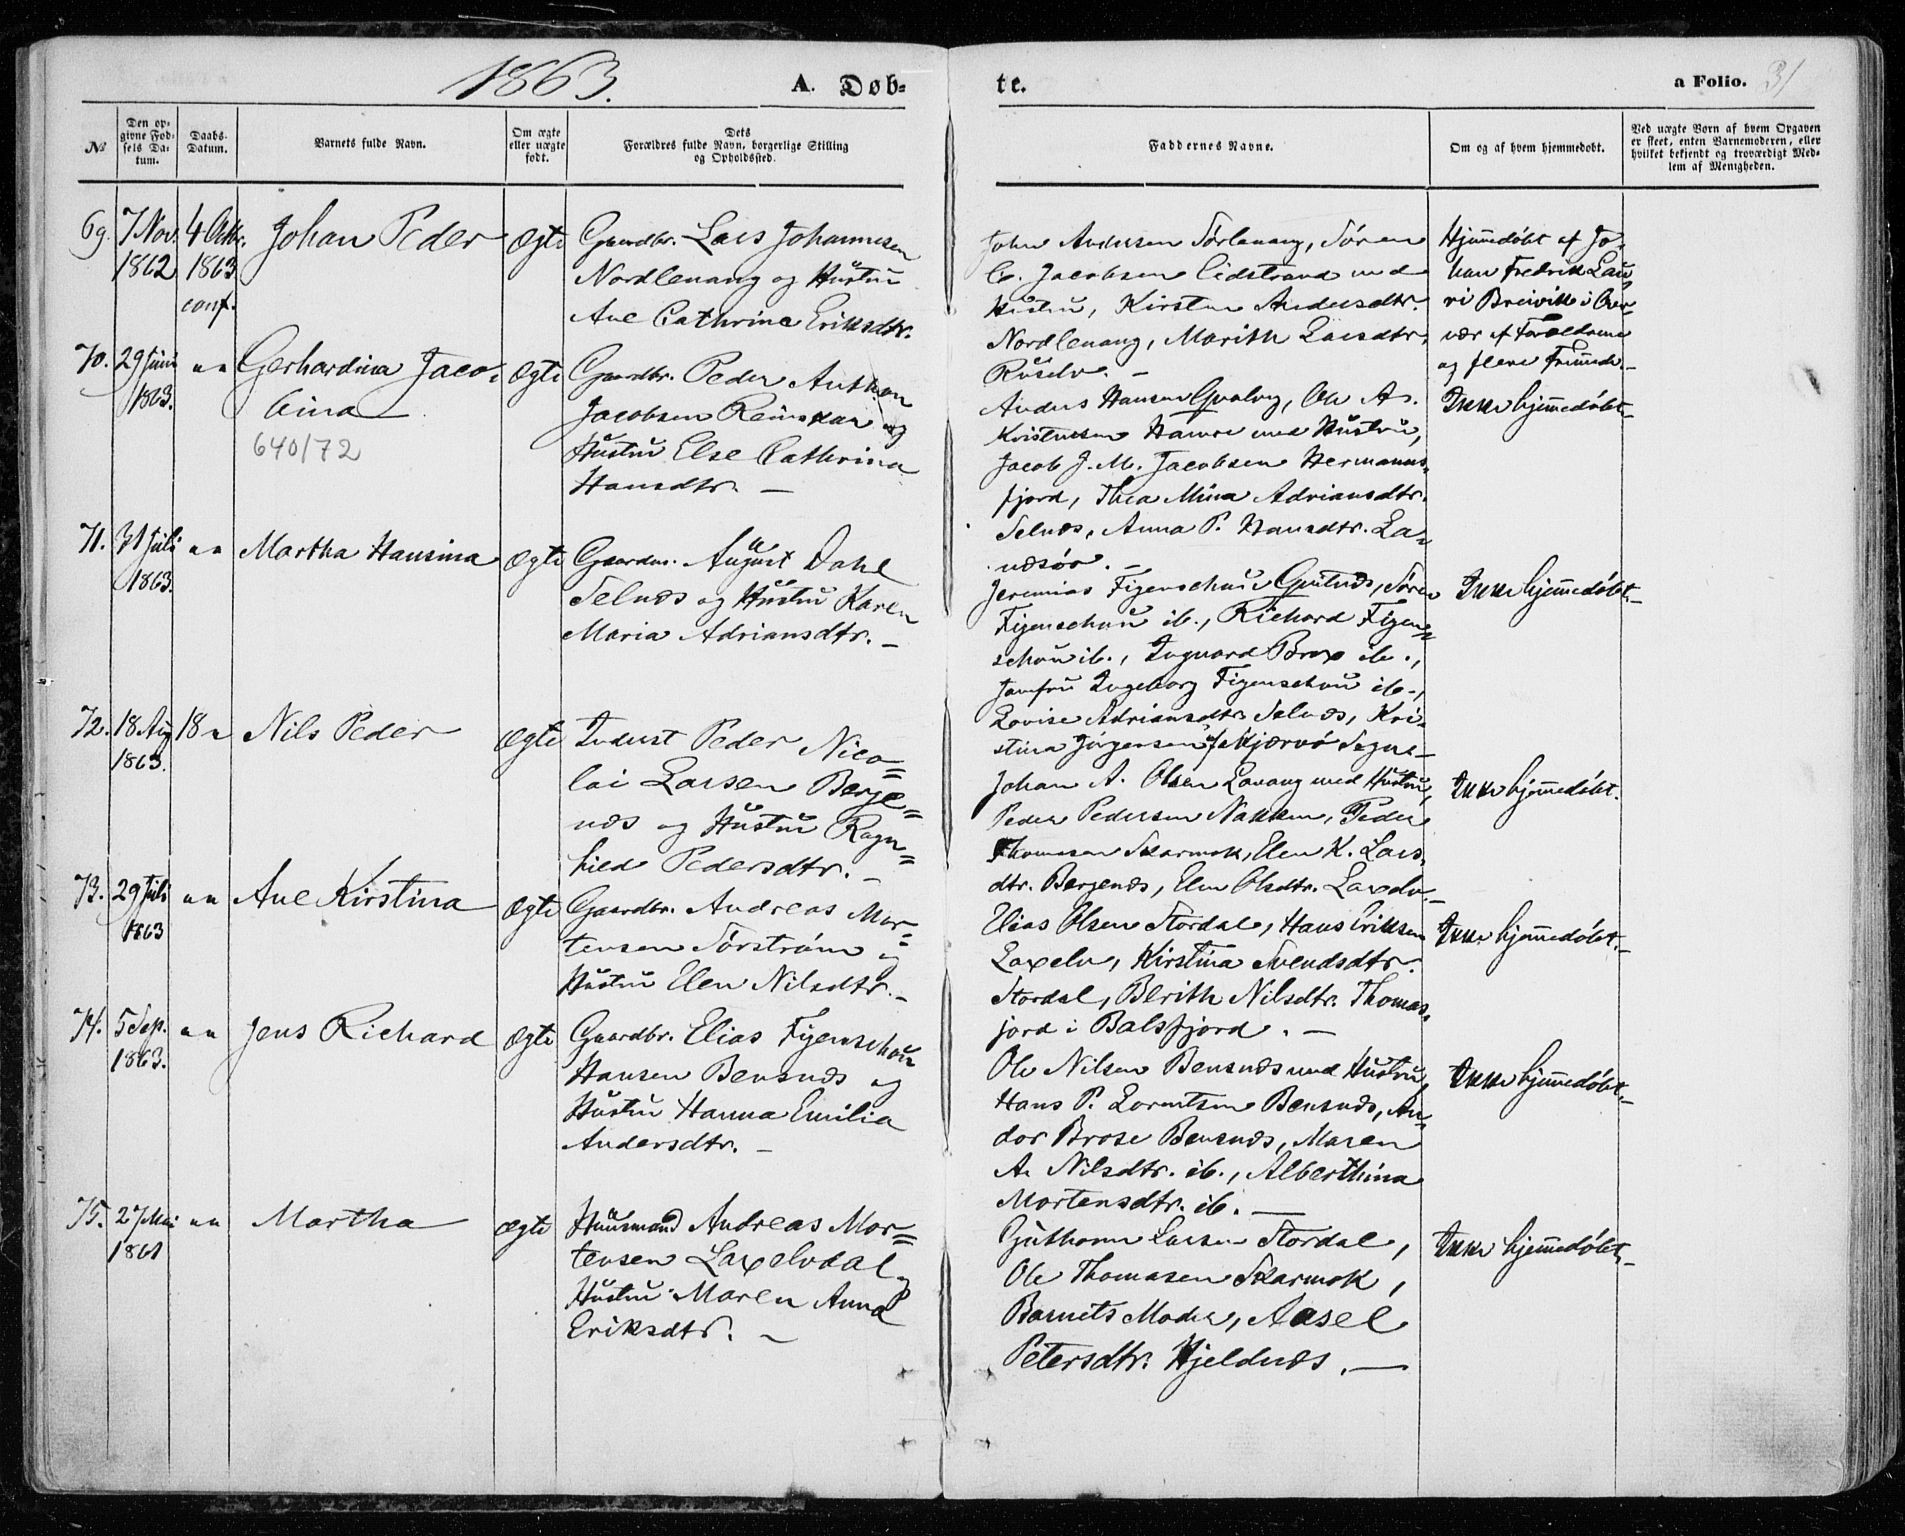 1863.
A. Døb-
te.
a Folio. 31
№
Den op-
givne Fød-
sels Da-
tum.
Daabs-
Datum.
Barnets fulde Navn.
Om ægte
eller uægte
født.
Dets
Forældres fulde Navn, borgerlige Stilling
og Opholdssted.
Faddernes Navne.
Om og af hvem hjemmedøbt.
Ved uægte Børn af hvem Opgaven
er skeet, enten Barnemoderen, eller
hvilket bekjendt og troværdigt Med-
lem af Menigheden.
69.
7 Nov.
1862
4 Octbr.
1863
conf.
Johan Peder
Ægte
Gaardbr. Lars Johannesen
Nordlenang og Hustru
Ane Cathrine Eriksdtr.
John Andersen Sørlenang, Søren
C. Jacobsen Eidstrand med
Hustru, Kirsten Andersdtr.
Nordlenang, Marith Larsdtr.
Hjemmedøbt af Jo-
han Fredrik Lau-
ri Breivik i Over-
vær af Forældrene
og flere Fremmede.
70.
29 Juni
1863.
" "
Gerhardina Jaco-
bina
640/72
Ægte
Gaardbr. Peder Anthon
Jacobsen Reinskar og
Hustru Else Cathrina
Hansdtr. —
Anders Hansen Gvalvg, Ole A.
Kristensen Hamre med Hustru,
Jacob J. M. Jacobsen Hermanns-
fjord, Thea Mina Adriansdtr.
Selnæs, Anna P. Hansdtr. La-
Ikke hjemmedøbt.
71.
31 Juli
1863.
" "
Martha Hansina
Ægte
August Dahl
Selnæs og Hustru Karen
Maria Adriansdtr. —
Jeremias Figenschou Søren
Figenschou ib., Richard Figen-
schou ib., Ingvard Brox ib.,
Jomfru Ingeborg Figenschou ib.,
Lovise Adriansdtr. Selnæs, Kri-
stina Jørgensen af Skjærvø Sogn.
Ikke hjemmedøbt.
72.
18 Aug
1863.
18 "
Nils Peder
Ægte
Inderst Peder Nico-
lai Larsen Berge-
næs og Hustru Ragn-
hild Pedersdtr. —
Johan A. Olsen Lavang med Hustru,
Peder Pedersen Nakken, Peder
Thomasen Skarmok, Elen K. Lars-
dtr. Bergenæs, Elen Olsdtr. Laxelv.
Ikke hjemmedøbt.
73.
29 Juli
1863
" "
Ane Kirstina
Ægte
Gaardbr. Andreas Mor-
tensen Sørstrøm og
Hustru Elen Nilsdtr. —
Elias Olsen Stordal, Hans Eriksen
Laxelv, Kirstina Svendsdtr.
Stordal, Berith Nilsdtr. Thomas-
jord i Balsfjord. —
Ikke hjemmedøbt.
74.
5 Sep.
1863.
" "
Jens Richard
Ægte
Gaardbr. Elias Figenschou
Hansen Bensnæs og
Hustru Hanna Emilia
Andersdtr. —
Ole Nilsen Bensnæs med Hustru,
Hans P. Lorentsen Bensnæs, An-
dor Brose Bensnæs, Maren
A. Nilsdtr. ib., Alberthina
Mortensdtr. ib. —
Ikke hjemmedøbt.
75.
27 Mai
1861
" "
Martha
Ægte
Huusmand Andreas Mor-
tensen Laxelvdal og
Hustru Maren Anna
Eriksdtr. —
Guthorm Larsen Stordal,
Ole Thomasen Skarmok,
Barnets Moder, Aasel
Petersdtr. Hjeldnæs. —
Ikke hjemmedøbt.